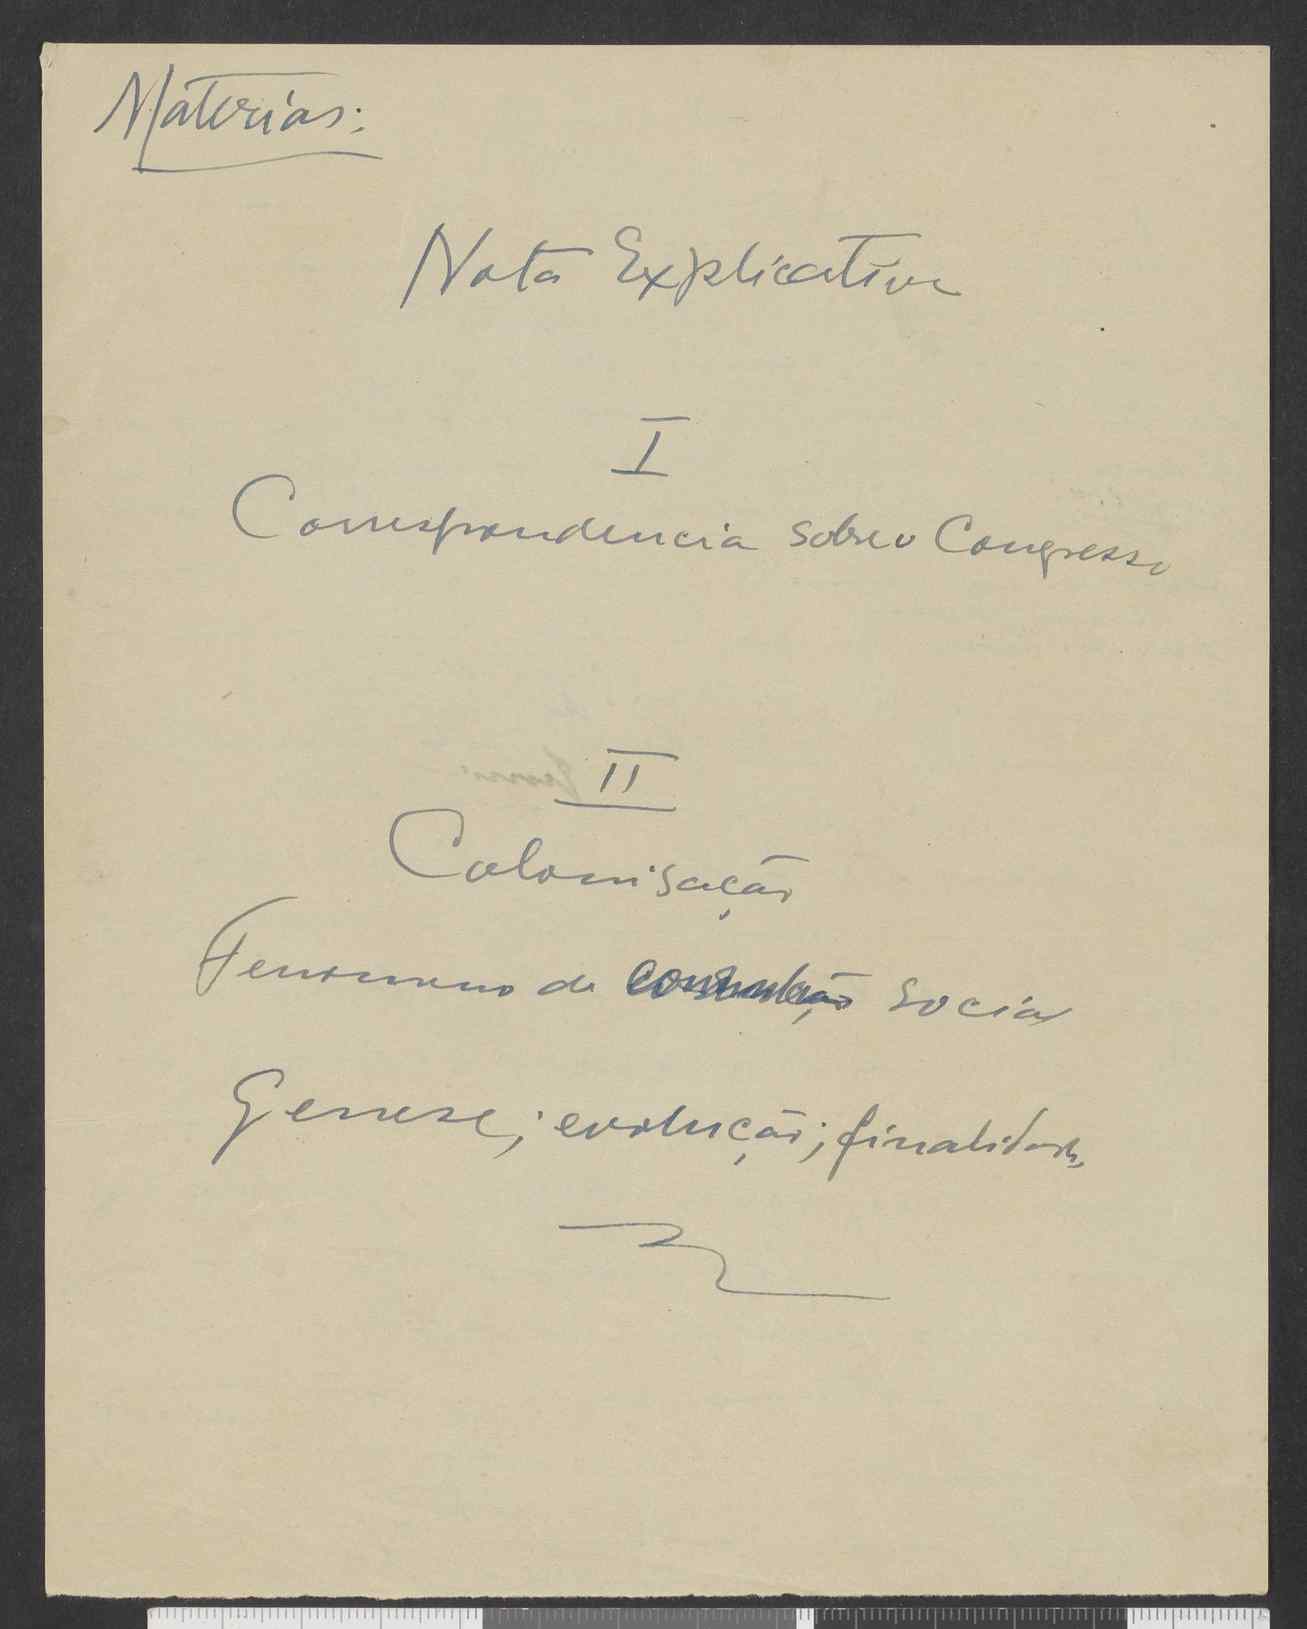 Materias:
Nota Explicativa
I
Correspondencia sobre o Congresso
II
Colonisação
Fenomeno de social
Genese; evolução; finalidade